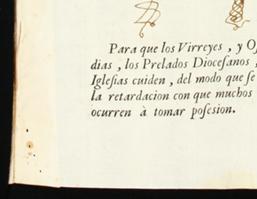 Para que los Virreyes , y
dias , los Prelados Diocesanos ,
Iglesias cuiden , del modo que se
la retardacion con que muchos
ocurren à tomar posesion.